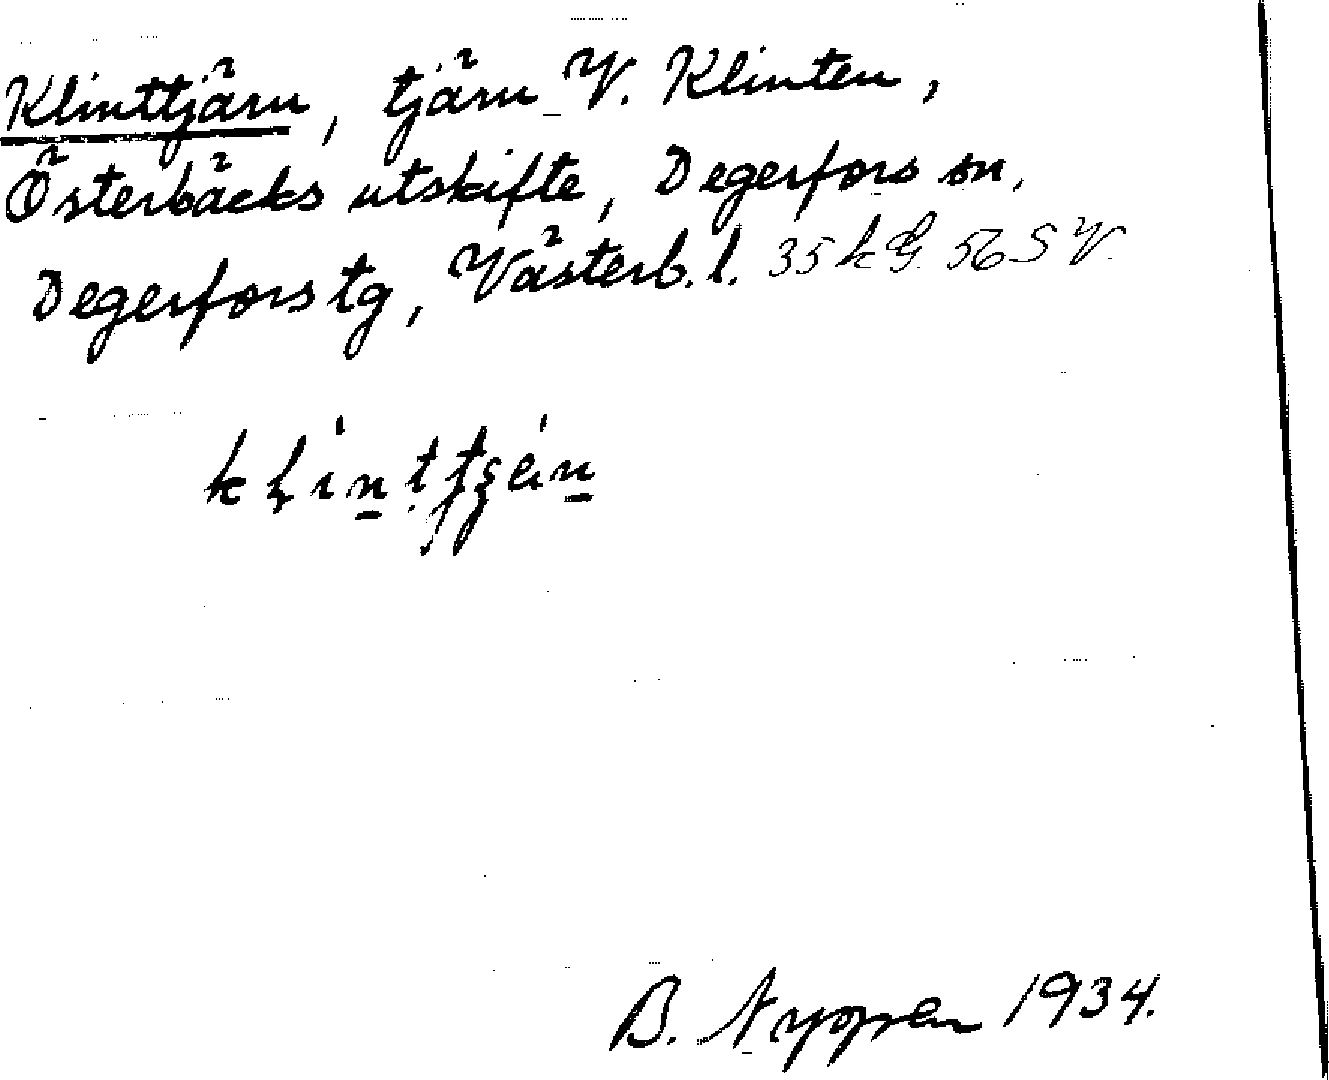 Klinttjärn, tjärn V. Klinten,
Österbäcks utskifte, Degerfors sn,
Degerfors tg, Västerb. l. 35 k G. 56 S V.
B. Nyppen 1934.